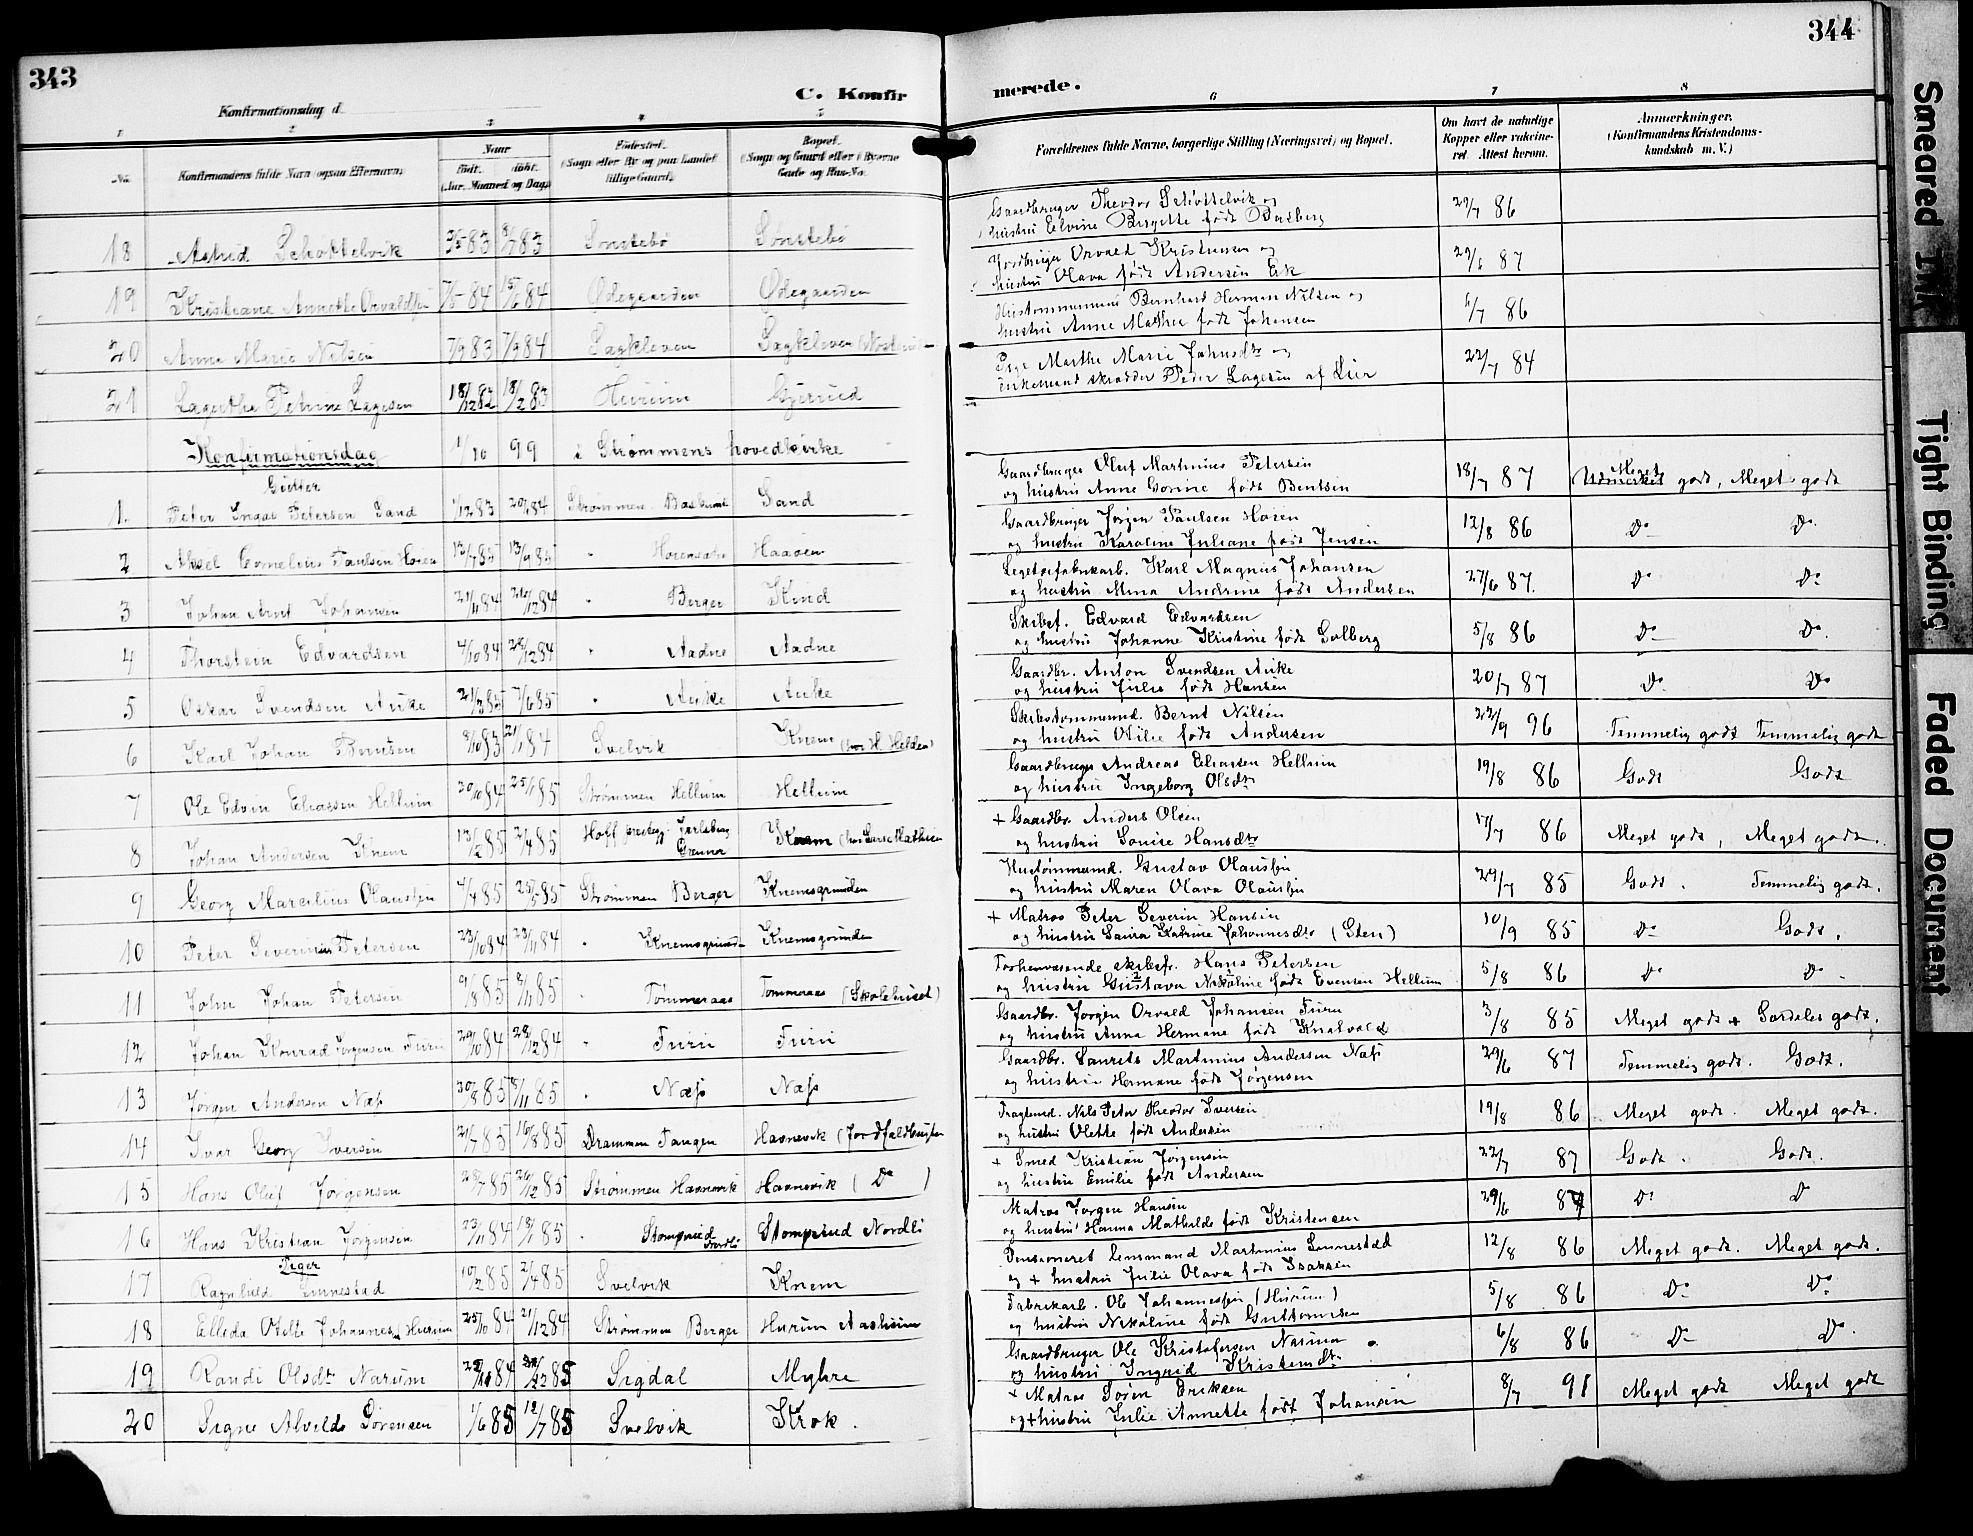 343
C. Konfir
Konfirmationsdag d.
1 2 3 4 5
No. Konfirmandens fulde Navn (ogsaa Efternavn) Naar født. døbt. (Aar, Maaned og Dag) Fødested. (Sogn eller By og paa Landet tillige Gaard) Bopæl. (Sogn og Gaard eller i Byerne Gade og Hus-No.
18 Astrid Schøttelvik 83 83 Sønstebø Sønstebø
19 Kristiane Annette Orvaldsen 84 84 Ødegaarden Ødegaarden
20 Anna Marie Nilsen 7/9 83 84 Sagkleven Sagkleven
21 Lagertha Petrine Lagesen 18/12 82 18/2 83 Hurum Gjerud
Konfirmationsdag 1/10 99 i Strømmens hovedkirke
Gutter
1. Peter Ingar Petersen Sand 1/12 83 84 Strømmen Sand
2 Aksel Cornelius Paulsen Høien 85 13/9 85 " Haaøen
3 Johan Arnt Johansen 84 26/12 84 " Berger Kind
4 Thorstein Edvardsen 4/10 84 28/12 84 " Aadne Aadne
5 Oskar Svendsen Auke 21/3 85 7/6 85 " Auke Auke
6 Karl Johan Berntsen 83 84 Svelvik Knem (hos H. Helden)
7 Ole Edvin Eliassen Hellum 20/10 84 25/1 85 Strømmen Hellum Hellum
8 Johan Andersen Knem 13/2 85 85 Hoff prestegj. Jarlsberg Grennes Knem (hos Lars Mathisen
9 Georg Marcilius Olaussen 4/4 85 25/5 85 Strømmen Berger Knemsgrunden
10 Peter Severinius Petersen 23/10 84 23/11 84 " Knemsgrunden Knemsgrunden
11 John Johan Petersen 9/8 85 85 " Tømmeraas Tømmeraas (Skolehuset)
12 Johan Konrad Jørgensen Furu 29/10 84 28/12 84 " Furu Furu
13 Jørgen Andersen Næss 30/8 85 8/11 85 " Næss Næss
14 Ivar Georg Iversen 21/7 85 16/8 85 Drammen Tangen Havnevik (Jordfaldbrus
15 Hans Oluf Jørgensen 85 26/12 85 Strømmen Havnevik Havnevik ( Do )
16 Hans Kristian Jørgensen 23/11 84 18/1 85 " Stomprud Nordli Stomprud Nordli
Piger
17 Ragnhild Linnestad 10/2 85 2/4 85 Svelvik Knem
18 Ellida Otilie Johannessen Hurum 25/10 84 21/12 84 Strømmen Berger Hurum Aasheim
19 Randi Olsdtr Narum 84 85 Sigdal Myhre
20 Signe Alvilde Sørensen 1/6 85 12/7 85 Svelvik Krok.
344
merede.
6 7 8
Forældrenes fulde Navne, borgerlige Stilling (Næringsvei) og Bopæl. Om havt de naturlige Kopper eller vakcineret. Attest herom. Anmærkninger. (Konfirmandens Kristendomskundskab m. V.)
Gaardbruger Theodor Schøttelvik og
hustru Elvine Birgitte født Basberg 29/7 86
Jordbruger Orvald Kristensen og
hustru Olava født Andersen Ek 87
Hustømmermand Bernhard Herman Nilsen og
hustru Anne Mathea født Johansen 6/7 86
Pige Marthe Marie Johnsdtr og
enkemand skrædder Peder Lagesen af Lier 22/7 84
Gaardbruger Oluf Martinius Petersen
og hustru Anne Gorine født Bentsen 18/7 87 Udmerket Meget godt, Meget godt
Gaardbruger Jørgen Paulsen Høien
og hustru Karoline Juliane født Jensen 12/8 86 Do Do
Legetøifabrikarb. Karl Magnus Johansen
og hustru Mina Andrine født Andersen 27/6 87. Do Do
Skibsf. Edvard Edvardsen
og hustru Johanne Kristine født Solberg 5/8 86 Do Do.
Gaardbr. Anton Svendsen Auke
og hustru Julie født Hansen 20/7 87 Do Do
Skibstømmermd. Bernt Nilsen
og hustru Otilie født Andersen 22/9 96 Temmelig godt Temmelig godt
Gaardbruger Andreas Eliassen Hellum
og hustru Ingeborg Olsdtr 19/8 86 Godt Godt
+ Gaardbr. Anders Olsen
og hustru Louise Hansdtr 17/7 86 Meget godt, Meget godt.
Hustømmermd. Gustav Olaussen
og hustru Maren Olava Olaussen 29/7 85 Godt. Temmelig godt.
+ Matros Peter Severin Hansen
og hustru Laura Katrine Johannesdtr (Sten) 10/9 85 Do Godt.
Forhenværende skibsf. Hans Petersen
og hustru Gustava Nikoline født Evensen Hellum 5/8 86 Do Do
Gaardbr. Jørgen Orvald Johansen Furu
og hustru Anna Hermane født Knatvold 3/8 85 Meget godt + Særdeles godt.
Gaardbr. Laurits Martinius Andersen Næss
og hustru Hermane født Jørgensen 29/6 87 Temmelig godt. Godt.
Fragtmd. Nils Peter Theodor Iversen
og hustru Olette født Andersen 19/8 86 Meget godt. Meget godt.
+ Smed Kristian Jørgensen
og hustru Emilie født Andersen 22/7 87 Godt. Godt.
Matros Jørgen Hansen
og hustru Hanna Mathilde født Kristensen 29/6 87 Do Do
Pensioneret lensmand Martinius Linnestad
og + hustru Julie Olava født Isaksen 12/8 86 Meget godt. Meget godt.
Fabrikarb. Ole Johannessen (Hurum)
og hustru Nikoline født Guttormsen 5/8 86 Do Do
Gaardbruger Ole Kristofersen Narum
og hustru Ingrid Kristendtr 6/8 86 Do Do.
+ Matros Søren Eriksen
og + hustru Julie Annette født Johansen 8/7 91 Meget godt Meget godt
Smeared Ink
Tight Binding
Faded Document